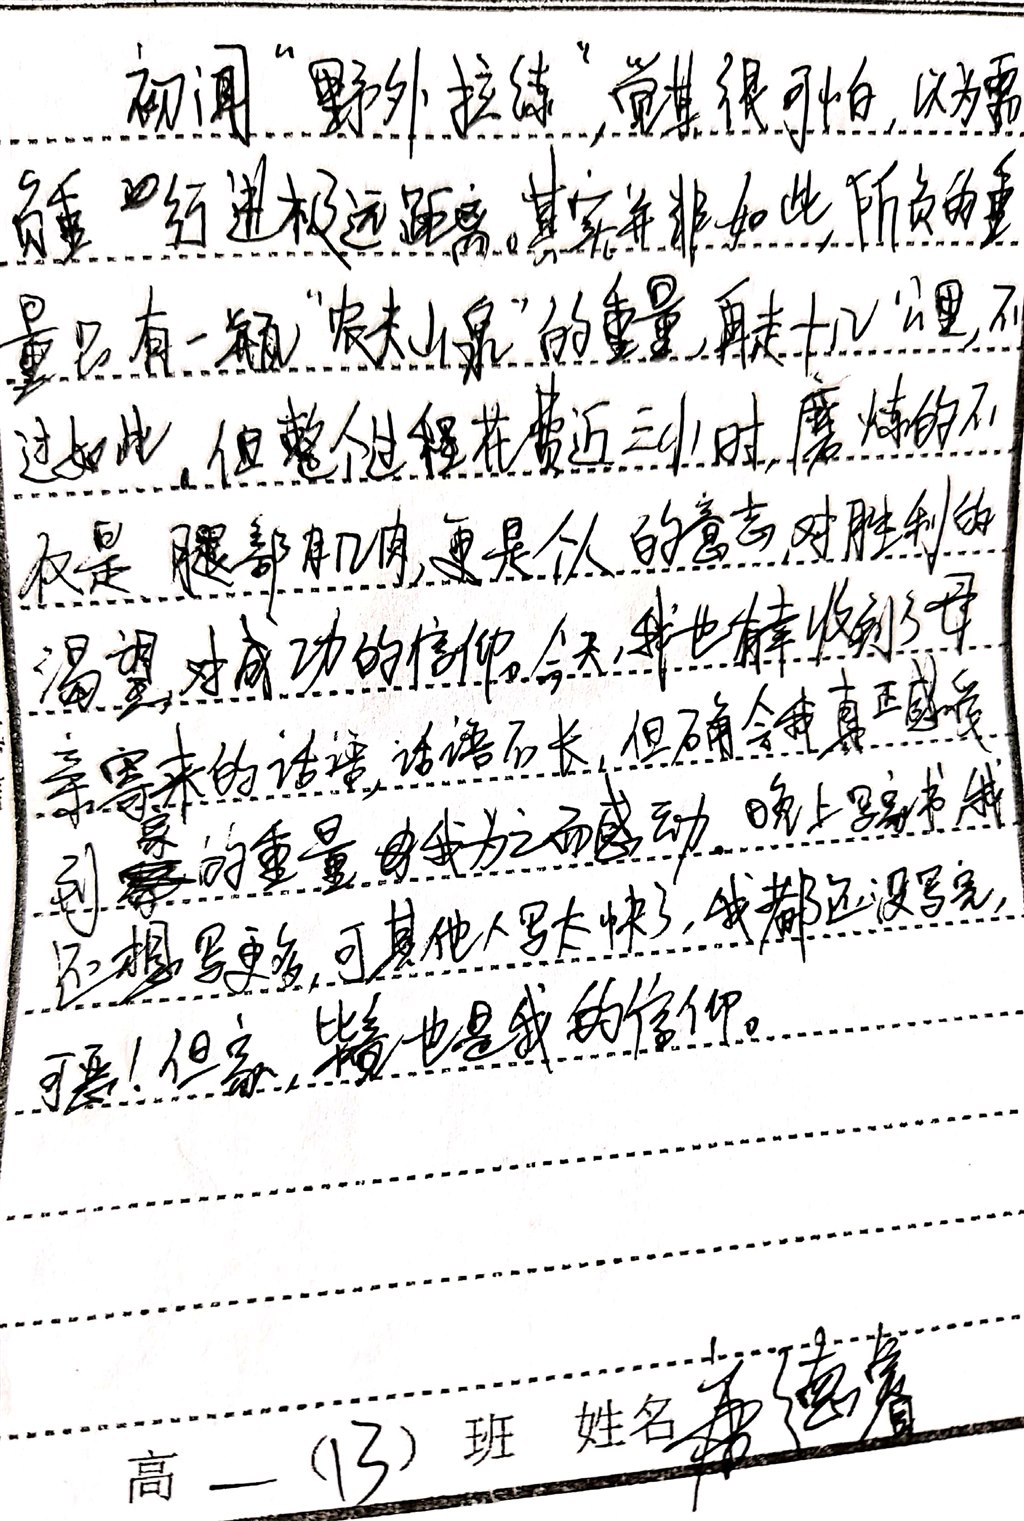 初闻“野外拉练”,觉其很可怕,以为需
负重 行进极远距离。其实并非如此,所负的重
量只有一瓶“农夫山泉”的重量,再走十几公里,不
过如此,但整个过程花费近三小时,磨炼的不
仅是腿部肌肉,更是个人的意志,对胜利的
渴望,对成功的信仰。今天,我也有幸收到了母
亲寄来的话语,话语不长,但确会我真正感受
到家的重量 我为之而感动。晚上写家书,我
还想写更多,可其他人写太快了,我都还没写完,
可恶!但家,毕竟也是我的信仰。
高一(13)班 姓名 德睿